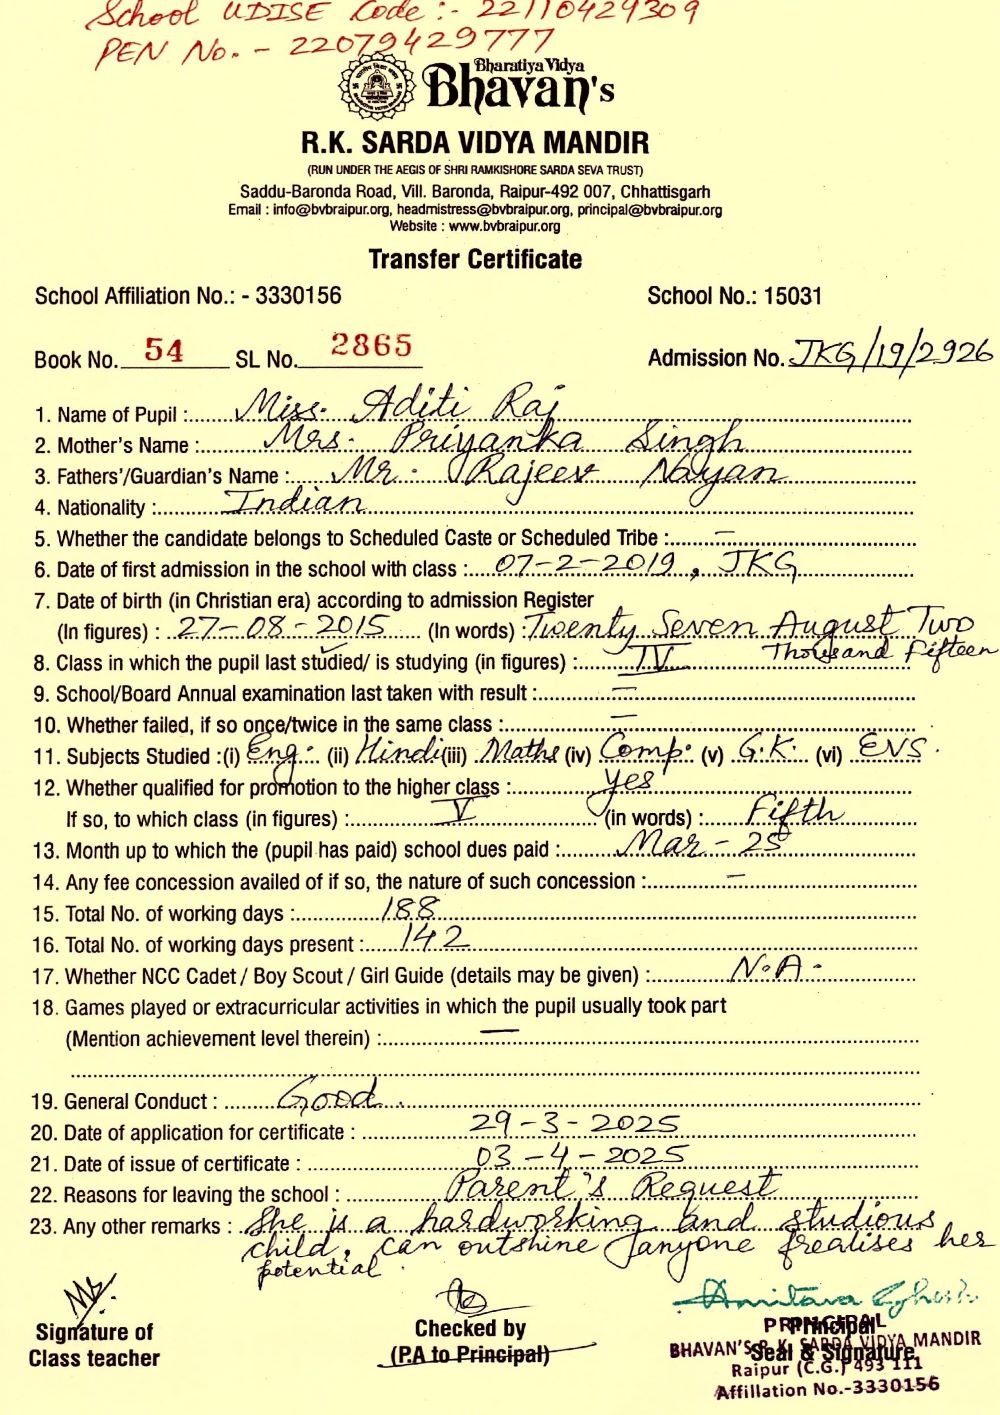 School UDISE Code :- 22110429309
PEN No. - 22079429777
Bharatiya Vidya
Bhavan's
R.K. SARDA VIDYA MANDIR
(RUN UNDER THE AEGIS OF SHRI RAMKISHORE SARDA SEVA TRUST)
Saddu-Baronda Road, Vill. Baronda, Raipur-492 007, Chhattisgarh
Email : info@bvbraipur.org, headmistress@bvbraipur.org, principal@bvbraipur.org
Website : www.bvbraipur.org
Transfer Certificate
School Affiliation No.: - 3330156 School No.: 15031
Book No. 54 SL No. 2865 Admission No. JKG/19/2926
1. Name of Pupil : Miss. Aditi Raj
2. Mother's Name : Mrs. Priyanka Singh
3. Fathers'/Guardian's Name : Mr. Rajeev Nayan
4. Nationality : Indian
5. Whether the candidate belongs to Scheduled Caste or Scheduled Tribe : —
6. Date of first admission in the school with class : 07-2-2019, JKG
7. Date of birth (in Christian era) according to admission Register
(In figures) : 27-08-2015 (In words) : Twenty Seven August Two
Thousand Fifteen
8. Class in which the pupil last studied/ is studying (in figures) : IV
9. School/Board Annual examination last taken with result : —
10. Whether failed, if so once/twice in the same class : —
11. Subjects Studied :(i) Eng. (ii) Hindi (iii) Maths (iv) Comp. (v) G.K. (vi) EVS.
12. Whether qualified for promotion to the higher class : yes
If so, to which class (in figures) : V (in words) : Fifth
13. Month up to which the (pupil has paid) school dues paid : Mar - 25
14. Any fee concession availed of if so, the nature of such concession : —
15. Total No. of working days : 188
16. Total No. of working days present : 142
17. Whether NCC Cadet / Boy Scout / Girl Guide (details may be given) : N.A.
18. Games played or extracurricular activities in which the pupil usually took part
(Mention achievement level therein) : —
19. General Conduct : Good.
20. Date of application for certificate : 29-3-2025
21. Date of issue of certificate : 03-4-2025
22. Reasons for leaving the school : Parent's Request
23. Any other remarks : She is a hardworking and studious
child, can outshine anyone realises her
potential.
Amitava Ghosh
Signature of
Class teacher
Checked by
(P.A to Principal)
Principal
Seal & Signature
PRINCIPAL
BHAVAN'S R.K. SARDA VIDYA MANDIR
Raipur (C.G.) 493 111
Affillation No.-3330156